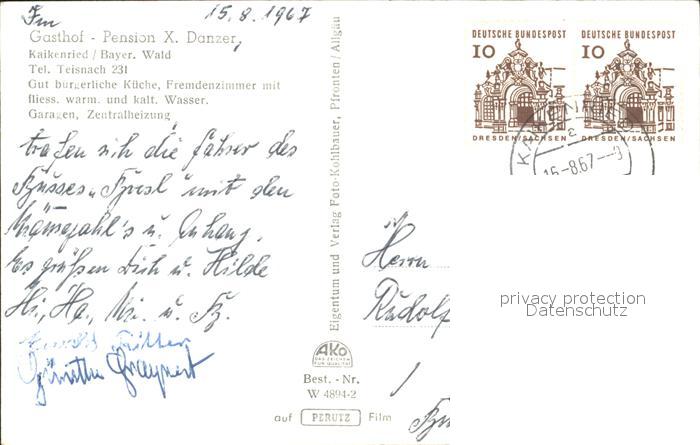 Im
15.8.1967
Gasthof - Pension X. Danzer,
Kaikenried / Bayer. Wald
Tel. Teisnach 231
Gut bürgerliche Küche, Fremdenzimmer mit
fliess. warm. und kalt. Wasser.
Garagen, Zentralheizung
trafen sich die Fahrer des
Busses "Bresl" mit den
u. Anhang.
Es grüßen Dich u. Hilde
Hi., Ha., u.
Günther
Eigentum und Verlag Foto-Kohlbauer, Pfronten/Allgäu
AKO
DAS ZEICHEN
FÜR QUALITÄT
Best. - Nr.
W 4894-2
auf PERUTZ Film
DEUTSCHE BUNDESPOST
10
DRESDEN/SACHSEN
DEUTSCHE BUNDESPOST
10
DRESDEN/SACHSEN
15.-8.67
Herrn
Rudolf
privacy protection
Datenschutz